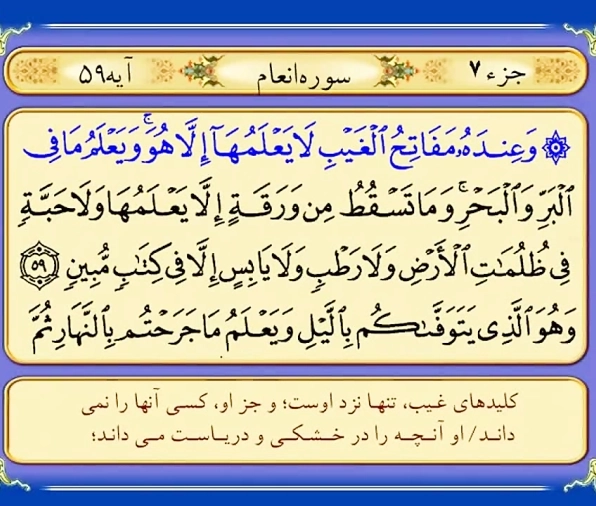 جزء ۷ سوره انعام آیه ۵۹
وَعِندَهُۥ مَفَاتِحُ ٱلْغَيْبِ لَا يَعْلَمُهَآ إِلَّا هُوَۚ وَيَعْلَمُ مَا فِى
ٱلْبَرِّ وَٱلْبَحْرِۚ وَمَا تَسْقُطُ مِن وَرَقَةٍ إِلَّا يَعْلَمُهَا وَلَا حَبَّةٍ
فِى ظُلُمَٰتِ ٱلْأَرْضِ وَلَا رَطْبٍ وَلَا يَابِسٍ إِلَّا فِى كِتَٰبٍ مُّبِينٍ ۵۹
وَهُوَ ٱلَّذِى يَتَوَفَّىٰكُم بِٱلَّيْلِ وَيَعْلَمُ مَا جَرَحْتُم بِٱلنَّهَارِ ثُمَّ
کلیدهای غیب، تنها نزد اوست؛ و جز او، کسی آنها را نمی
داند/ او آنچه را در خشکی و دریاست می داند؛